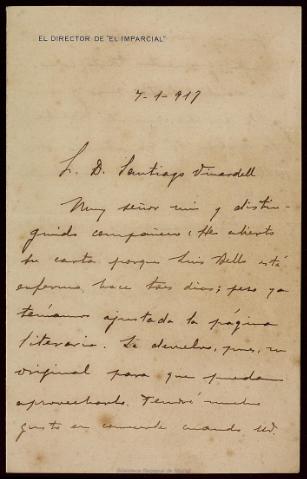 EL DIRECTOR DE "EL IMPARCIAL"
7-1-917
S. D. Santiago Vinardell
Muy señor mio y distin-
guido compañero: He abierto
su carta porque Luis Bello está
enfermo, hace tres dias; pero ya
teníamos ajustada la página
literaria. Le devuelvo, pues, su
original para que puedan
aprovecharlo. Tendré mucho
gusto en conocerle cuando ud.
Biblioteca Nacional de Madrid